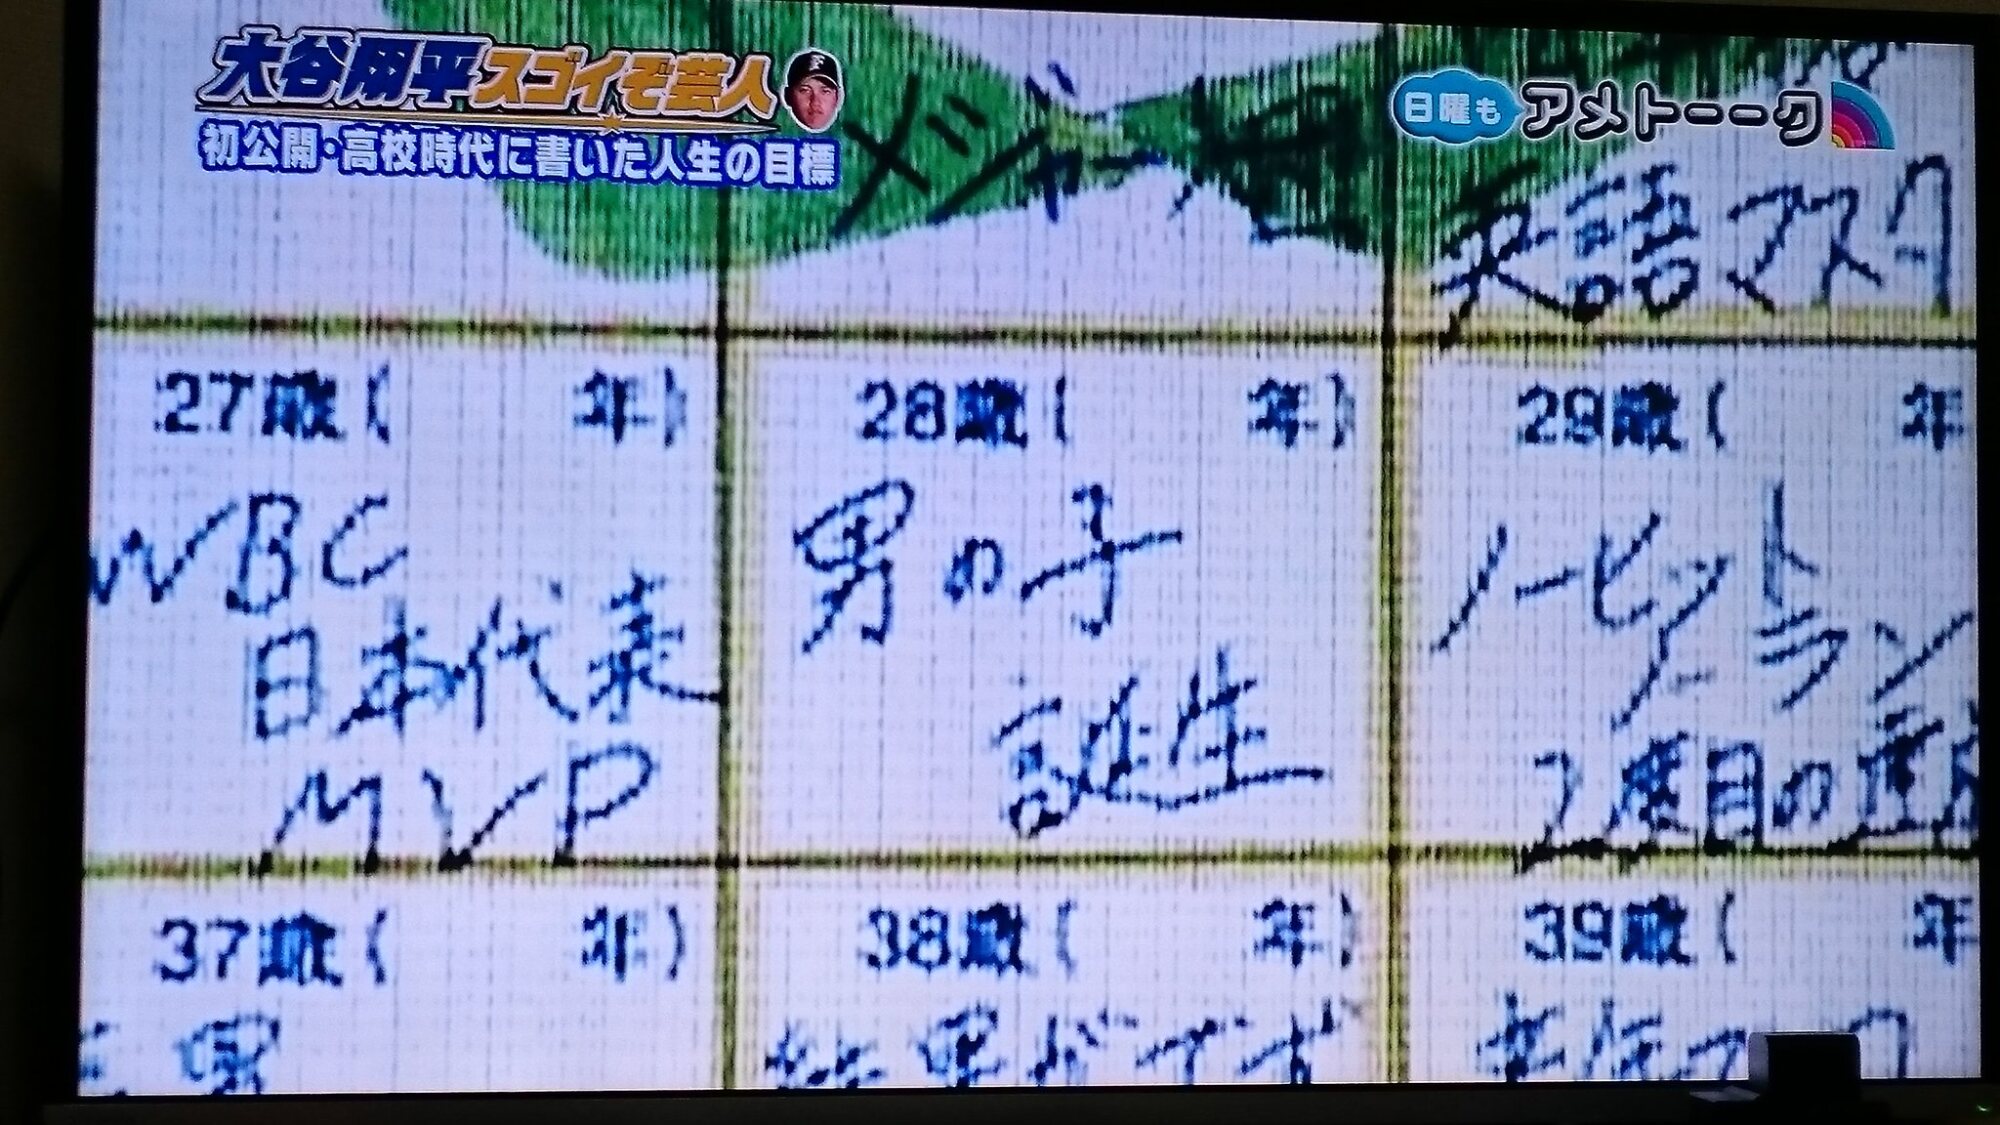 大谷翔平スゴイぞ芸人
初公開・高校時代に書いた人生の目標
日曜も アメトーーク
メジャー
英語マスタ
27歳( 年)
WBC
日本代表
MVP
28歳( 年)
男の子
誕生
29歳( 年
ノーヒット
ノーラン
2度目の達成
37歳( 年)
長男
38歳( 年)
39歳( 年